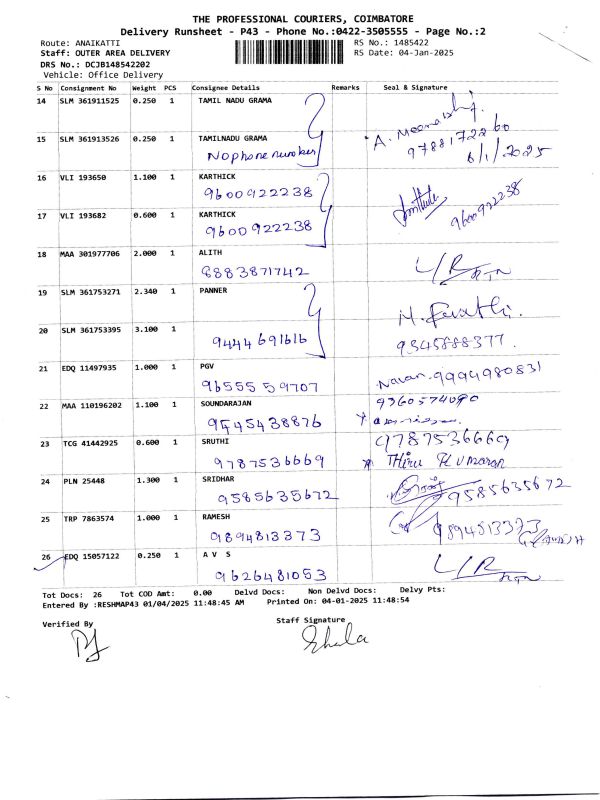 THE PROFESSIONAL COURIERS, COIMBATORE
Delivery Runsheet - P43 - Phone No.:0422-3505555 - Page No.:2
Route: ANAIKATTI RS No.: 1485422
Staff: OUTER AREA DELIVERY RS Date: 04-Jan-2025
DRS No.: DCJB148542202
Vehicle: Office Delivery
S No Consignment No Weight PCS Consignee Details Remarks Seal & Signature
14 SLM 361911525 0.250 1 TAMIL NADU GRAMA
A. Meena
15 SLM 361913526 0.250 1 TAMILNADU GRAMA 9788172260
Nophone number 6/1/2025
16 VLI 193650 1.100 1 KARTHICK
9600922238
17 VLI 193682 0.600 1 KARTHICK 9600922238
9600922238
18 MAA 301977706 2.000 1 ALITH
8883871742 L/R RTN
19 SLM 361753271 2.340 1 PANNER
20 SLM 361753395 3.100 1
9444691616 9345888377.
21 EDQ 11497935 1.000 1 PGV
9655559707 Navan. 9994980831
22 MAA 110196202 1.100 1 SOUNDARAJAN 9360574090
9545438876
23 TCG 41442925 0.600 1 SRUTHI 9787536669
9787536669 Thiru Kumaran
24 PLN 25448 1.300 1 SRIDHAR
9585635672 9585635672
25 TRP 7863574 1.000 1 RAMESH
9894813373 9894813373
26 EDQ 15057122 0.250 1 A V S
9626481053 L/R RTN
Tot Docs: 26 Tot COD Amt: 0.00 Delvd Docs: Non Delvd Docs: Delvy Pts:
Entered By :RESHMAP43 01/04/2025 11:48:45 AM Printed On: 04-01-2025 11:48:54
Verified By Staff Signature